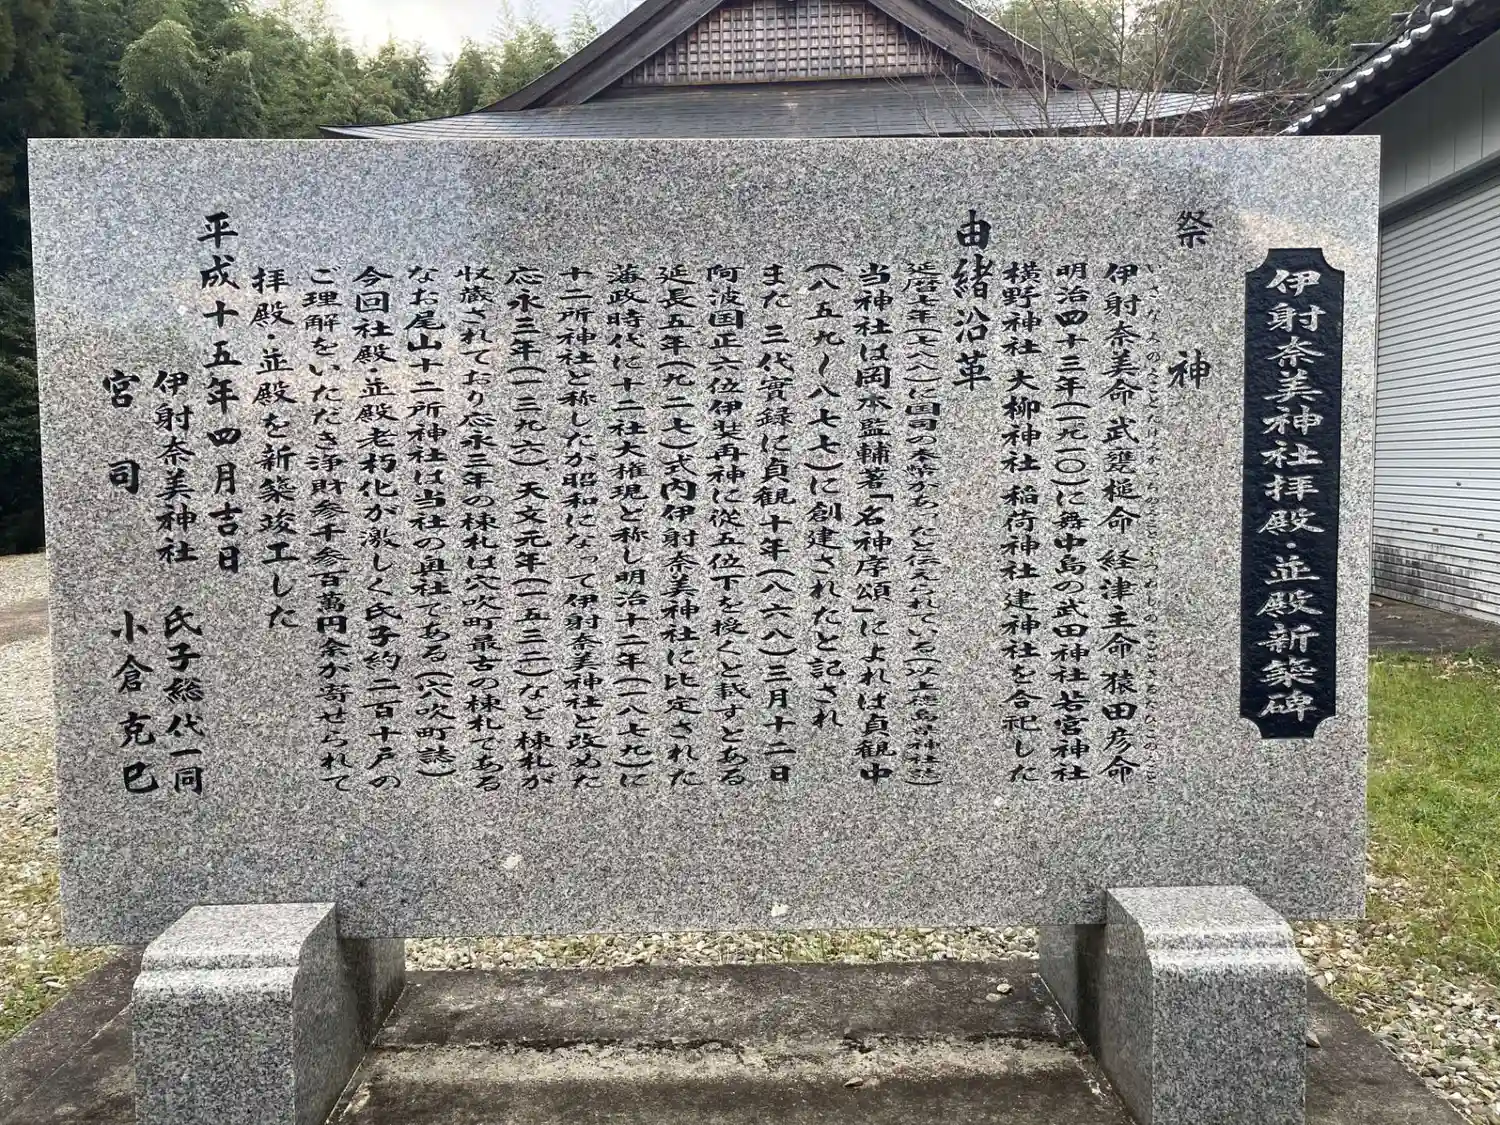 伊射奈美神社拝殿・並殿新築碑
祭神
伊射奈美命 武甕槌命 経津主命 猿田彦命
いざなみのみこと たけみか ちのみこと ふつぬしのみこと さるたひこのみこと
明治四十三年(一九一〇)に舞中島の武田神社 若宮神社
横野神社 大柳神社 稲荷神社 建神社を合祀した
由緒沿革
延暦七年(七八八)に国司の奉幣があったと伝えられている(以上徳島県神社誌)
当神社は岡本監輔著「名神序頌」によれば貞観中
(八五九〜八七七)に創建されたと記され
また 三代實録に貞観十年(八六八)三月十二日
阿波国正六位伊射奈美神に従五位下を授くと載すとある
延長五年(九二七)式内伊射奈美神社に比定された
藩政時代に十二社大権現と称し明治十二年(一八七九)に
十二所神社と称したが昭和になって伊射奈美神社と改めた
応永三年(一三九六)、天文元年(一五三二)など棟札が
収蔵されており応永三年の棟札は穴吹町最古の棟札である
なお尾山十二所神社は当社の奥社である(穴吹町誌)
今回社殿・並殿老朽化が激しく氏子約二百十戸の
ご理解をいただき浄財参千参百萬円余が寄せられて
拝殿・並殿を新築竣工した
平成十五年四月吉日
伊射奈美神社 氏子総代一同
宮司 小倉克巳